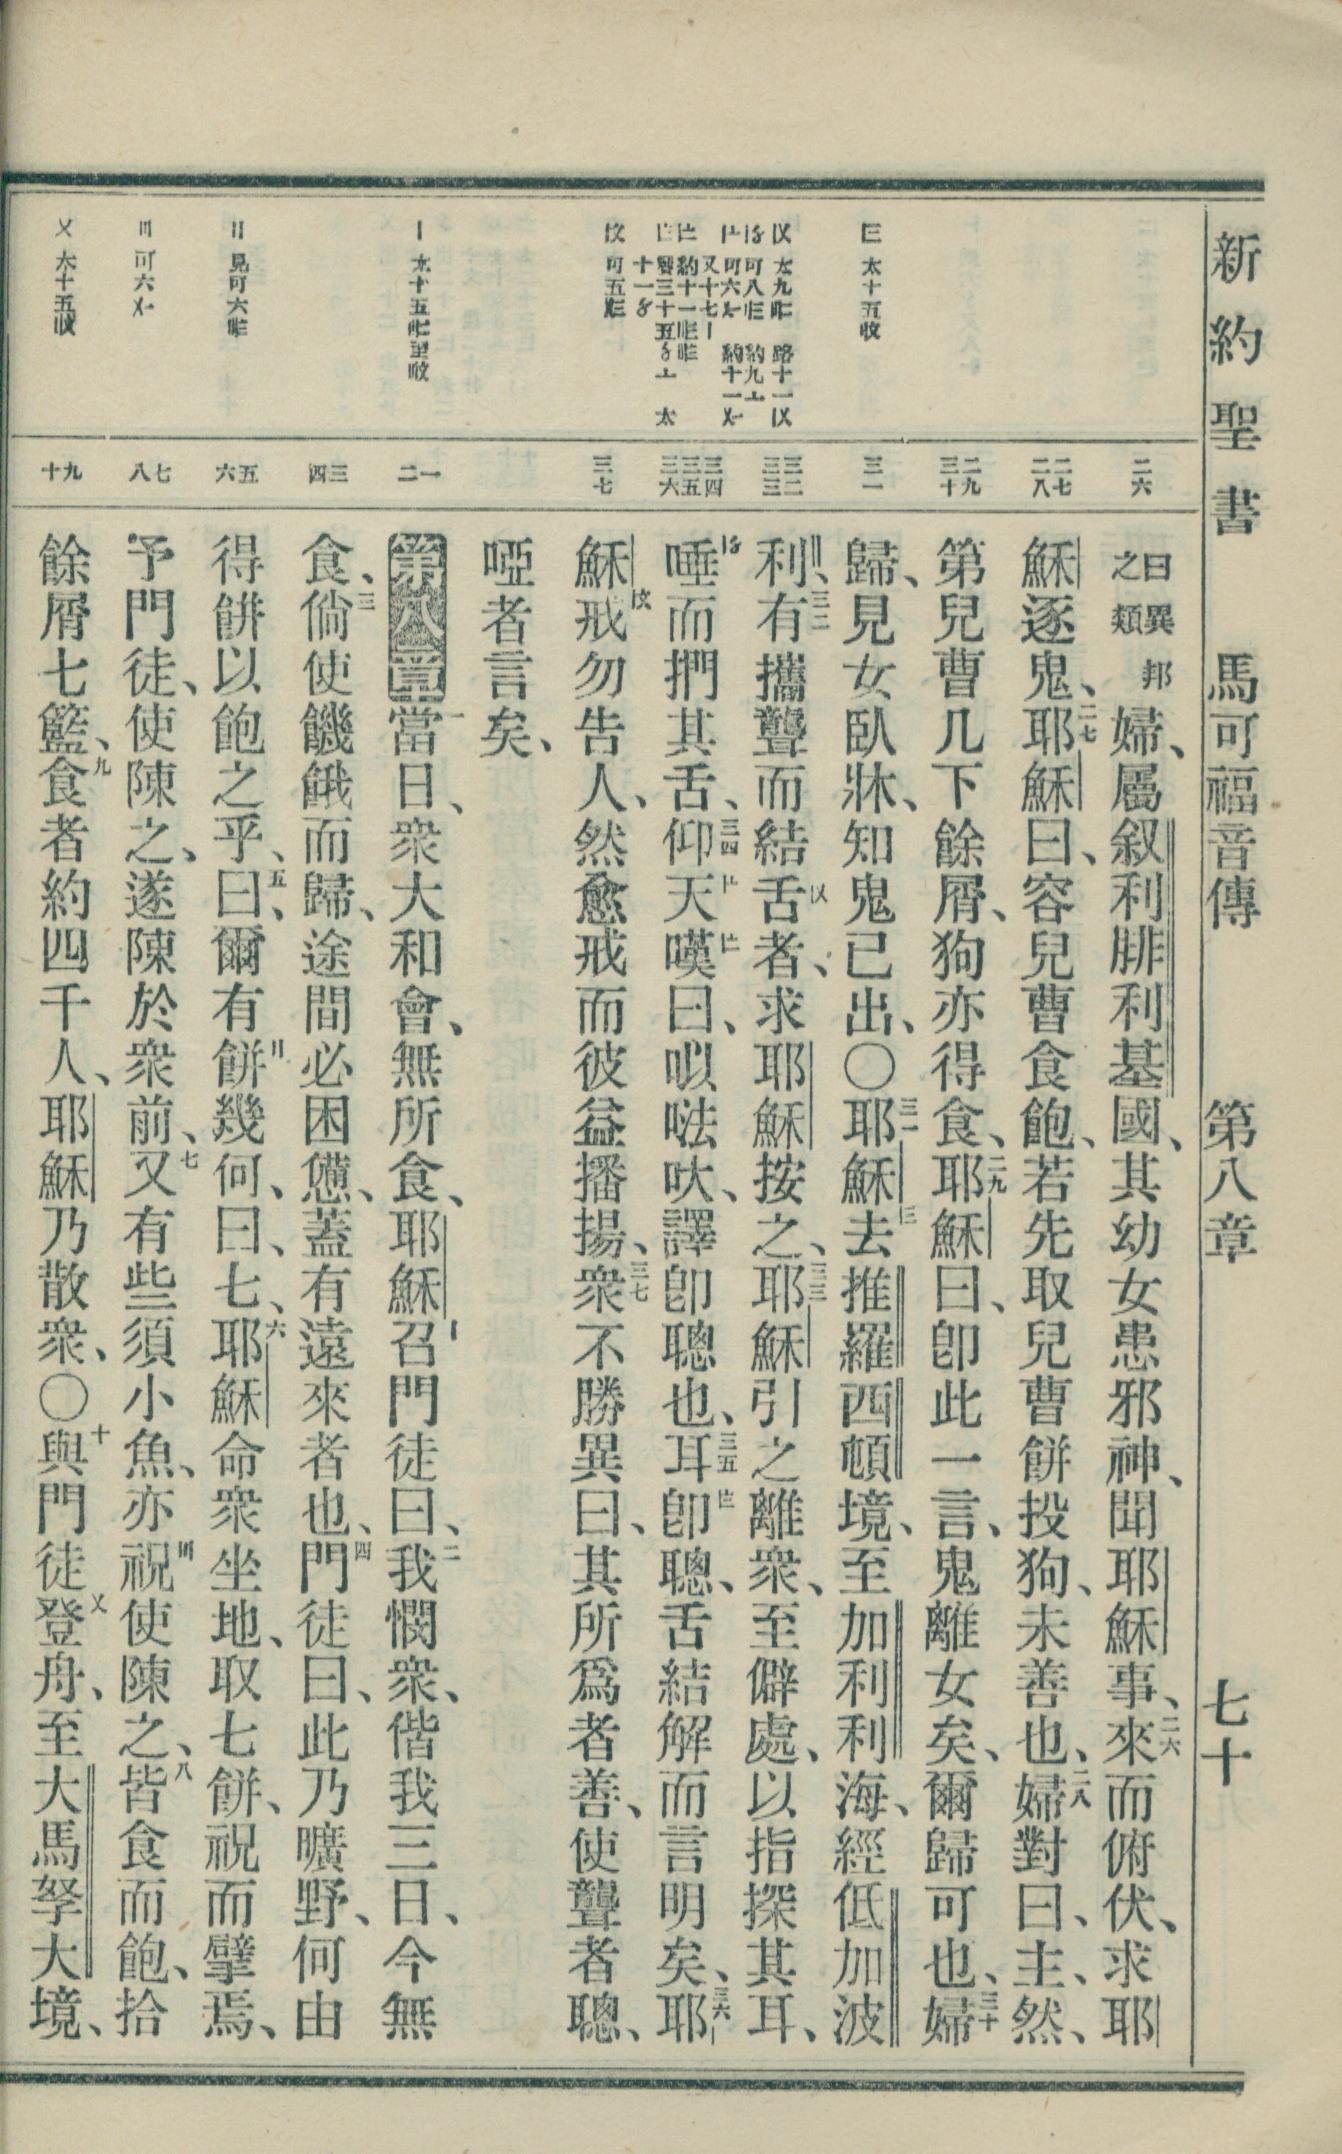 新約聖書 馬可福音傳 第八章 七十
二六
曰異邦之類婦、屬叙利腓利基國、其幼女患邪神、聞耶穌事、二六來而俯伏、求耶
二七 二八
穌逐鬼、二七耶穌曰、容兒曹食飽、若先取兒曹餅投狗、未善也、二八婦對曰、主、然、
二九 三十
第兒曹几下餘屑、狗亦得食、二九耶穌曰、卽此一言、鬼離女矣、爾歸可也、三十婦
三一
歸、見女臥牀、知鬼已出、〇三一耶穌去推羅西頓境、至加利利海、經低加波
三二 三三
利、三二有攜聾而結舌者、求耶穌按之、三三耶穌引之離衆、至僻處、以指探其耳、
三四 三五 三六
唾而捫其舌、三四仰天嘆曰、㕥㗙吠、譯卽聰也、三五耳卽聰、舌結解而言明矣、三六耶
三七
穌戒勿告人、然愈戒而彼益播揚、三七衆不勝異曰、其所爲者善、使聾者聰、
啞者言矣、
一 二
第八章 一當日、衆大和會、無所食、耶穌召門徒曰、二我憫衆、偕我三日、今無
三 四
食、三倘使饑餓而歸、途間必困憊、蓋有遠來者也、四門徒曰、此乃曠野、何由
五 六
得餅以飽之乎、五曰、爾有餅幾何、曰、七、六耶穌命衆坐地、取七餅、祝而擘焉、
七 八
予門徒、使陳之、遂陳於衆前、七又有些須小魚、亦祝使陳之、八皆食而飽、拾
九 十
餘屑七籃、九食者約四千人、耶穌乃散衆、〇十與門徒登舟、至大馬拏大境、